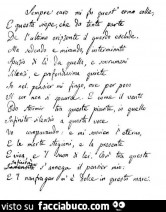 Sempre caro mi fu quest' ermo colle,
E questa siepe, che da tanta parte
De l'ultimo orizzonte il guardo esclude.
Ma sedendo e mirando, interminato
Spazio di là da quella, e sovrumani
Silenzi, e profondissima quiete
Io nel pensier mi fingo, ove per poco
Il cor non si spaura. E come il vento
Odo stormir tra queste piante, io quello
Infinito silenzio a questa voce
Vo comparando: e mi sovvien l'eterno,
E le morte stagioni, e la presente
E viva, e 'l suon di lei. Così tra questa
s'annega il pensier mio:
E 'l naufragar m'è dolce in questo mare.
visto su facciabuco.com